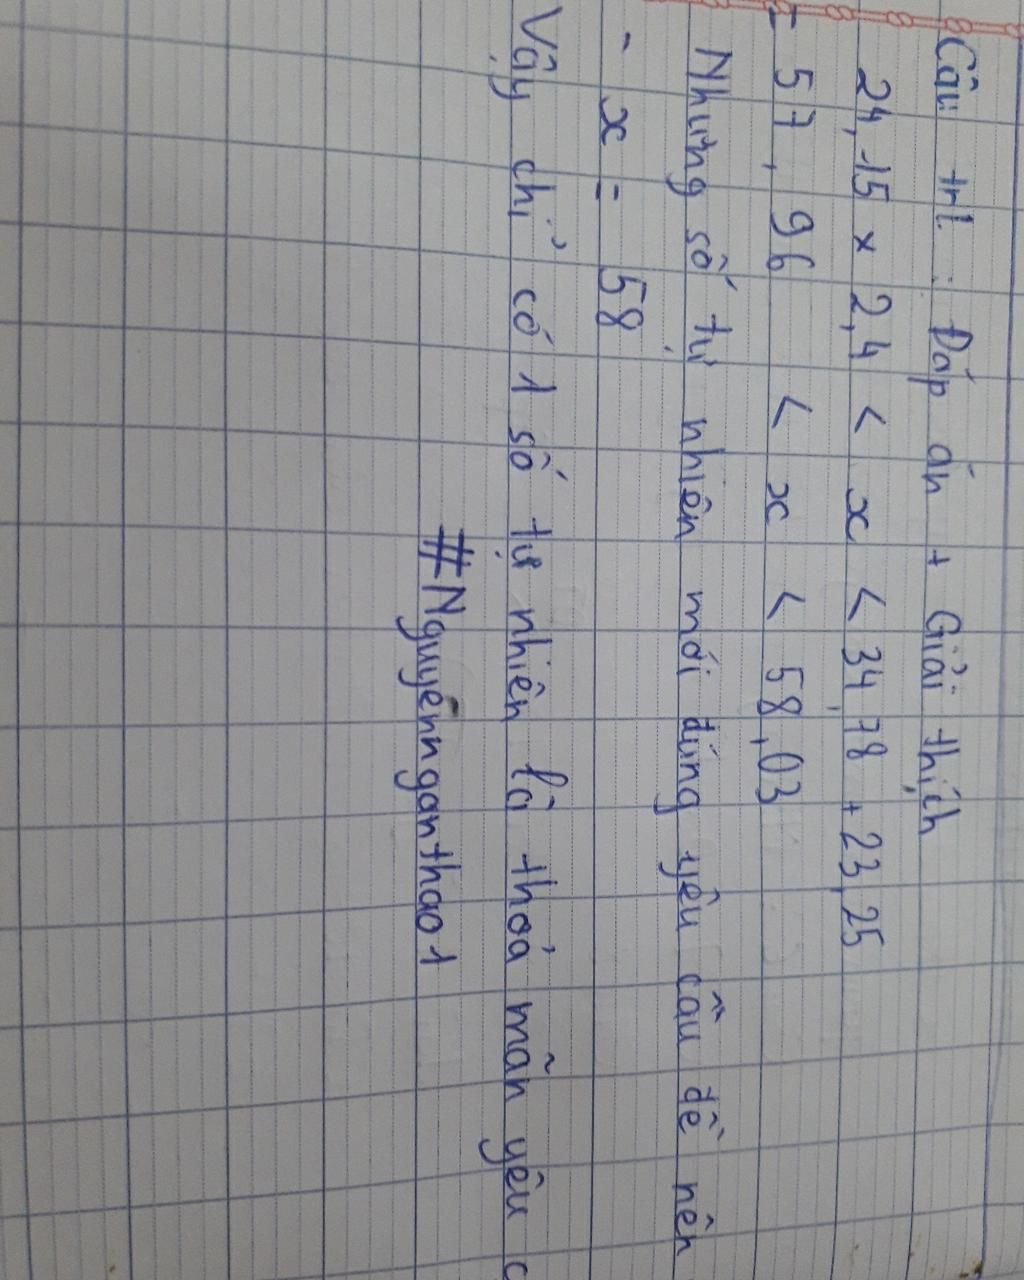 Câu trl : Đáp án + Giải thích
24,15 x 2,4 < x < 34,78 + 23,25
= 57,96 < x < 58,03
Nhưng số tự nhiên mới đúng yêu cầu đề nên
- x = 58
Vậy chỉ có 1 số tự nhiên là thoả mãn yêu c
#Nguyennganthao1